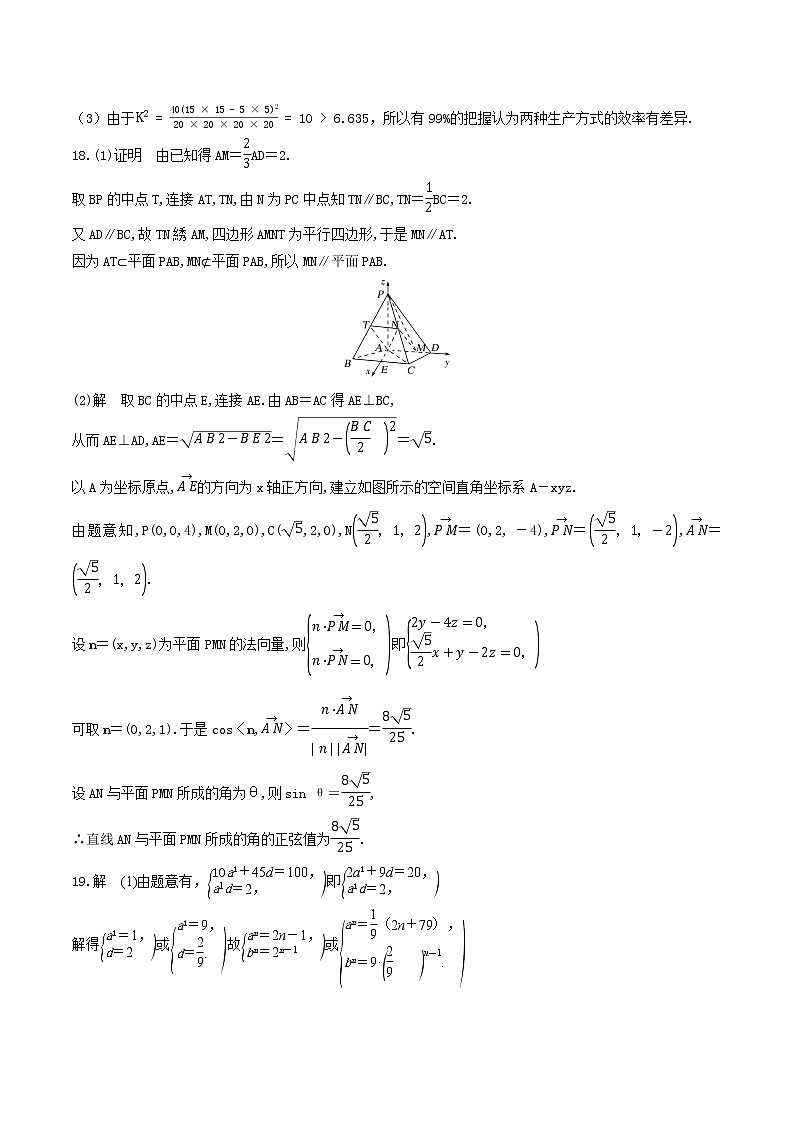 （3）由于K² = 40(15 × 15 − 5 × 5)² / 20 × 20 × 20 × 20 = 10 > 6.635，所以有99%的把握认为两种生产方式的效率有差异.
18.(1)证明　由已知得AM=2/3AD=2.
取BP的中点T,连接AT,TN,由N为PC中点知TN∥BC,TN=1/2BC=2.
又AD∥BC,故TN綉AM,四边形AMNT为平行四边形,于是MN∥AT.
因为AT⊂平面PAB,MN⊄平面PAB,所以MN∥平面PAB.
z
P
T N
A M D
B E C y
x
(2)解　取BC的中点E,连接AE.由AB=AC得AE⊥BC,
从而AE⊥AD,AE=√(AB2−BE2)=√(AB2−(BC/2)²)=√5.
以A为坐标原点,AE→的方向为x轴正方向,建立如图所示的空间直角坐标系A－xyz.
由题意知,P(0,0,4),M(0,2,0),C(√5,2,0),N(√5/2, 1, 2),PM→=(0,2, −4),PN→=(√5/2, 1, −2),AN→=
(√5/2, 1, 2).
设n=(x,y,z)为平面PMN的法向量,则{n·PM→=0, n·PN→=0, )即{2y−4z=0, √5/2x+y−2z=0, )
可取n=(0,2,1).于是cos〈n,AN→〉=n·AN→/|n||AN→|=8√5/25.
设AN与平面PMN所成的角为θ,则sin θ=8√5/25,
∴直线AN与平面PMN所成的角的正弦值为8√5/25.
19.解　(1)由题意有, {10a1+45d=100, a1d=2, )即{2a1+9d=20, a1d=2, )
解得{a1=1, d=2 )或{a1=9, d=2/9. )故{an=2n−1, bn=2ⁿ⁻¹ )或{an=1/9（2n+79）, bn=9·(2/9)ⁿ⁻¹. )